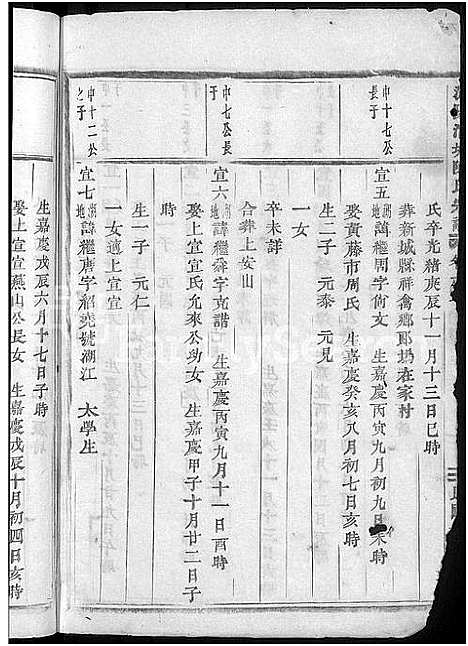 氏卒光緒庚辰十一月十三日巳時
葬新城縣祥禽鄉
在家村
中十七公
長子
宣五
諱繼周字尙文 生嘉慶丙寅九月初九日未時
娶黃藤市周氏 生嘉慶癸亥八月初七日亥時
生二子 元泰 元見
卒未詳
合葬上安山
中七公長
子
宣六
諱繼舜字克諧 生嘉慶丙寅九月十一日酉時
娶上宣宜氏允來公幼女 生嘉慶甲子十月廿二日子
時
生一子 元仁
一女適上宣宜
中十二公
之子
宣七
諱繼唐字紹堯號湖江 太學生
生嘉慶戊辰六月十七日子時
娶上宣宜燕山公長女 生嘉慶戊辰十月初四日亥時